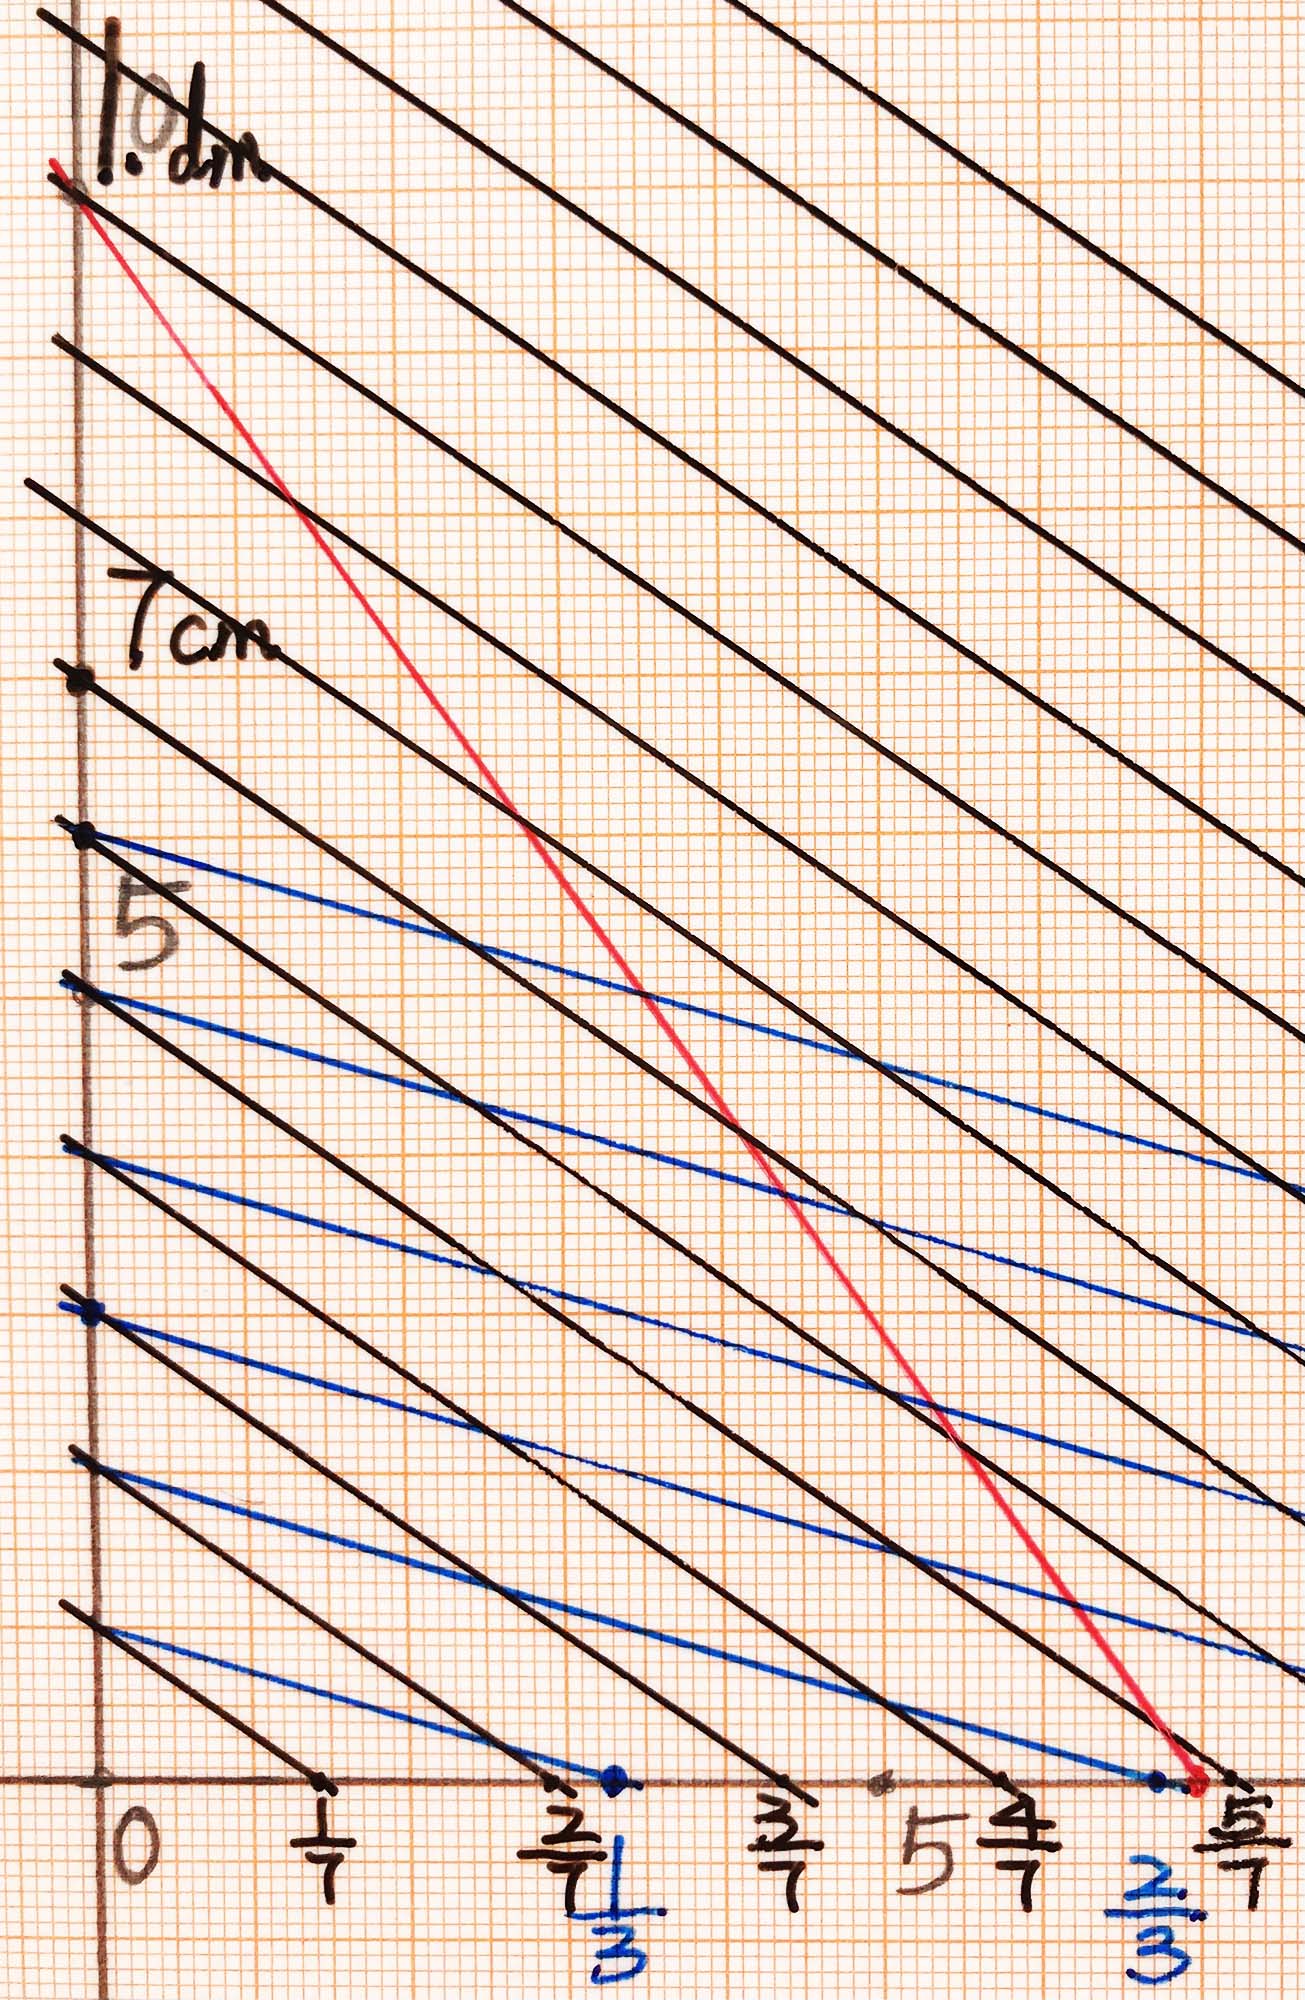 1.0dm
7cm
5
0 1/7 2/7 1/3 3/7 5 4/7 2/3 5/7